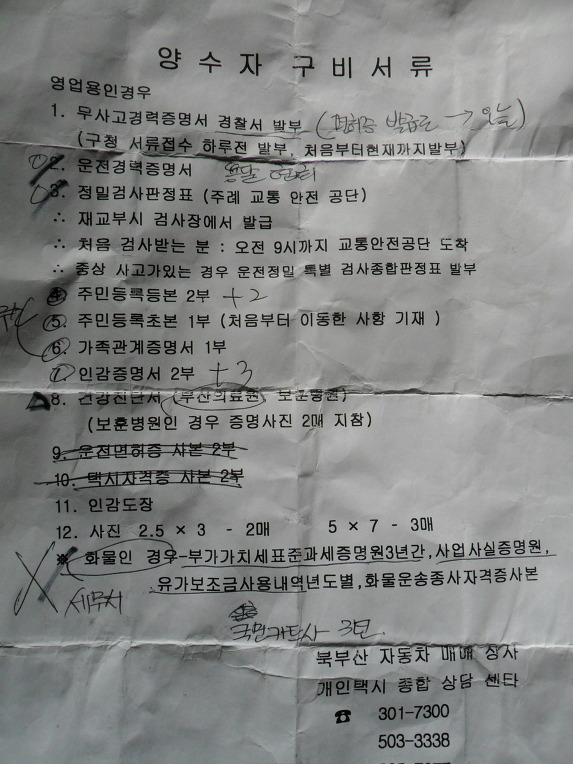 양수자 구비서류
영업용인경우
1. 무사고경력증명서 경찰서 발부 (면허증 발급일 → 오늘)
(구청 서류접수 하루전 발부, 처음부터현재까지발부)
2. 운전경력증명서
3. 정밀검사판정표 (주례 교통 안전 공단)
∴ 재교부시 검사장에서 발급
∴ 처음 검사받는 분 : 오전 9시까지 교통안전공단 도착
∴ 중상 사고가있는 경우 운전정밀 특별 검사종합판정표 발부
4. 주민등록등본 2부 +2
5. 주민등록초본 1부 (처음부터 이동한 사항 기재 )
6. 가족관계증명서 1부
7. 인감증명서 2부 +3
8. 건강진단서 (부산의료원, 보훈병원)
(보훈병원인 경우 증명사진 2매 지참)
9. 운전면허증 사본 2부
10. 택시자격증 사본 2부
11. 인감도장
12. 사진 2.5 × 3 - 2매 5 × 7 - 3매
※ 화물인 경우-부가가치세표준과세증명원3년간, 사업사실증명원,
유가보조금사용내역년도별, 화물운송종사자격증사본
세무서
3년
북부산 자동차 매매 상사
개인택시 종합 상담 센타
☎ 301-7300
503-3338